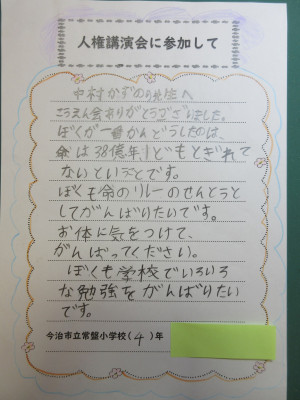 人権講演会に参加して
中村かずの先生へ
こうえん会ありがとうございました。
ぼくが一番かんどうしたのは、
命は38億年1どもとぎれて
ないということです。
ぼくも命のリレーのせんとうと
してがんばりたいです。
お体に気をつけて、
がんばってください。
ぼくも学校でいろいろ
な勉強をがんばりたい
です。
今治市立常盤小学校(4)年